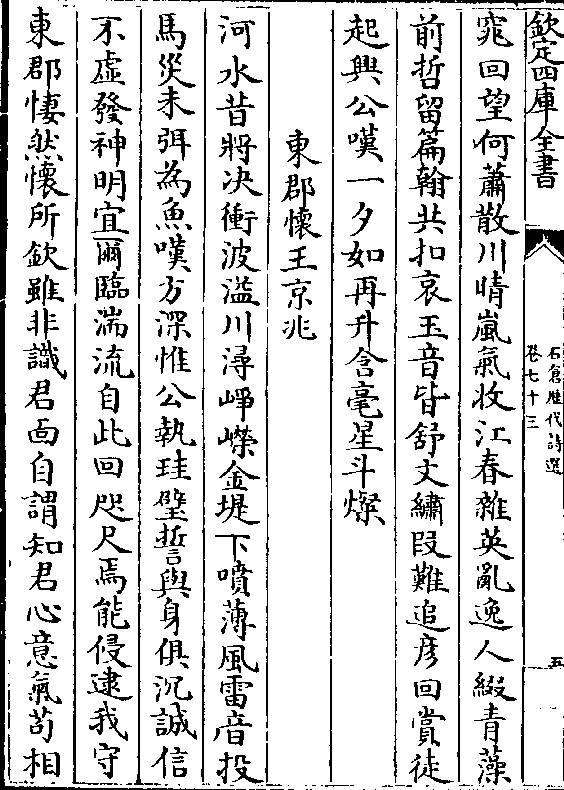 欽定四庫全書
石倉歷代詩選
卷七十三
五
窕回望何蕭散川晴嵐氣收江春雜英亂逸人綴青藻
前哲留篇翰共扣哀玉音皆舒文繡段難追彦回賞徒
起興公嘆一夕如再升含毫星斗燦
東郡懷王京兆
河水昔將决衝波溢川潯崢嶸金堤下噴薄風雷音投
馬災未弭為魚嘆方深惟公執珪璧誓與身俱沉誠信
不虛發神明宜爾臨湍流自此回咫尺焉能侵逮我守
東郡悽然懷所欽雖非識君面自謂知君心意氣苟相